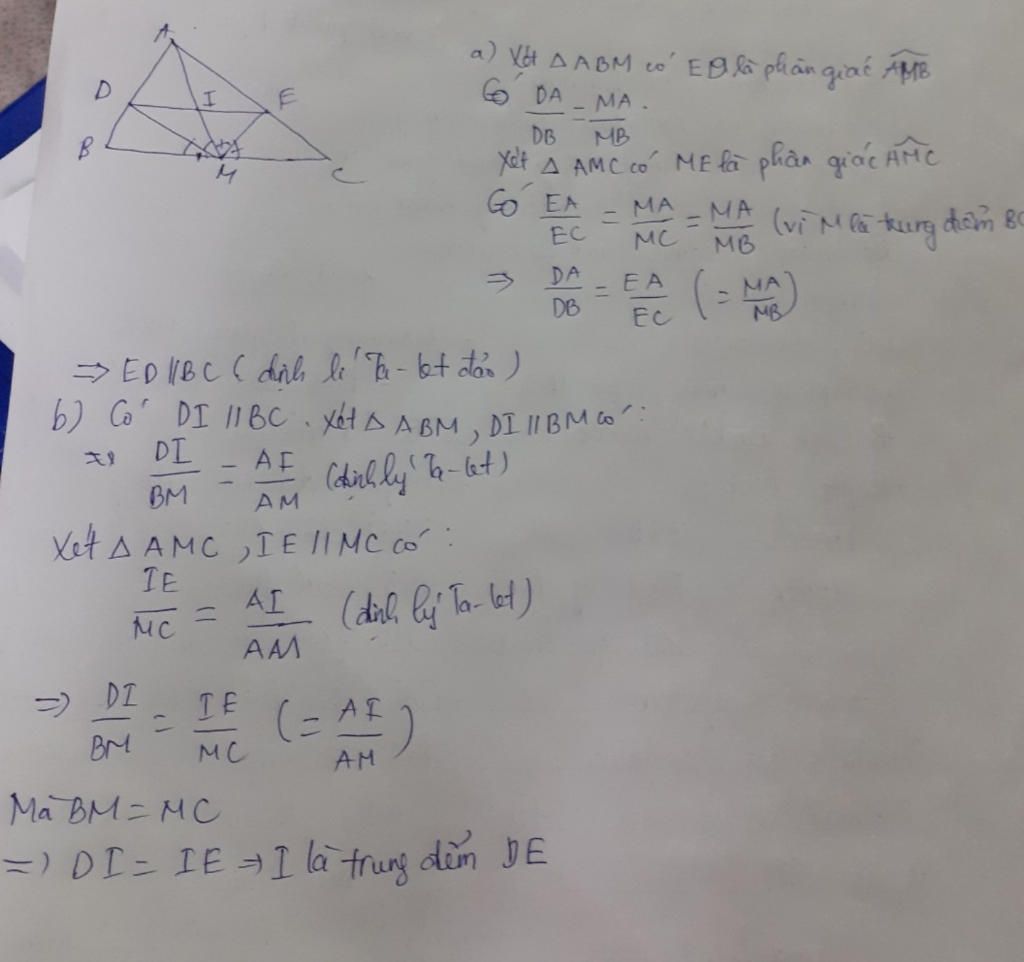 A
D
I
E
B
M
C
a) Xét △ ABM có ED là phân giác \widehat{AMB}
Có \frac{DA}{DB} = \frac{MA}{MB}.
Xét △ AMC có ME là phân giác \widehat{AMC}
Có \frac{EA}{EC} = \frac{MA}{MC} = \frac{MA}{MB} (vì M là trung điểm BC
⇒ \frac{DA}{DB} = \frac{EA}{EC} (= \frac{MA}{MB})
⇒ ED // BC ( định lí Ta-lét đảo )
b) Có DI // BC. Xét △ ABM, DI // BM có :
\frac{DI}{BM} = \frac{AI}{AM} (định lý Ta-lét)
Xét △ AMC, IE // MC có :
\frac{IE}{MC} = \frac{AI}{AM} (định lý Ta-lét)
⇒ \frac{DI}{BM} = \frac{IE}{MC} (= \frac{AI}{AM})
Mà BM = MC
⇒ DI = IE → I là trung điểm DE